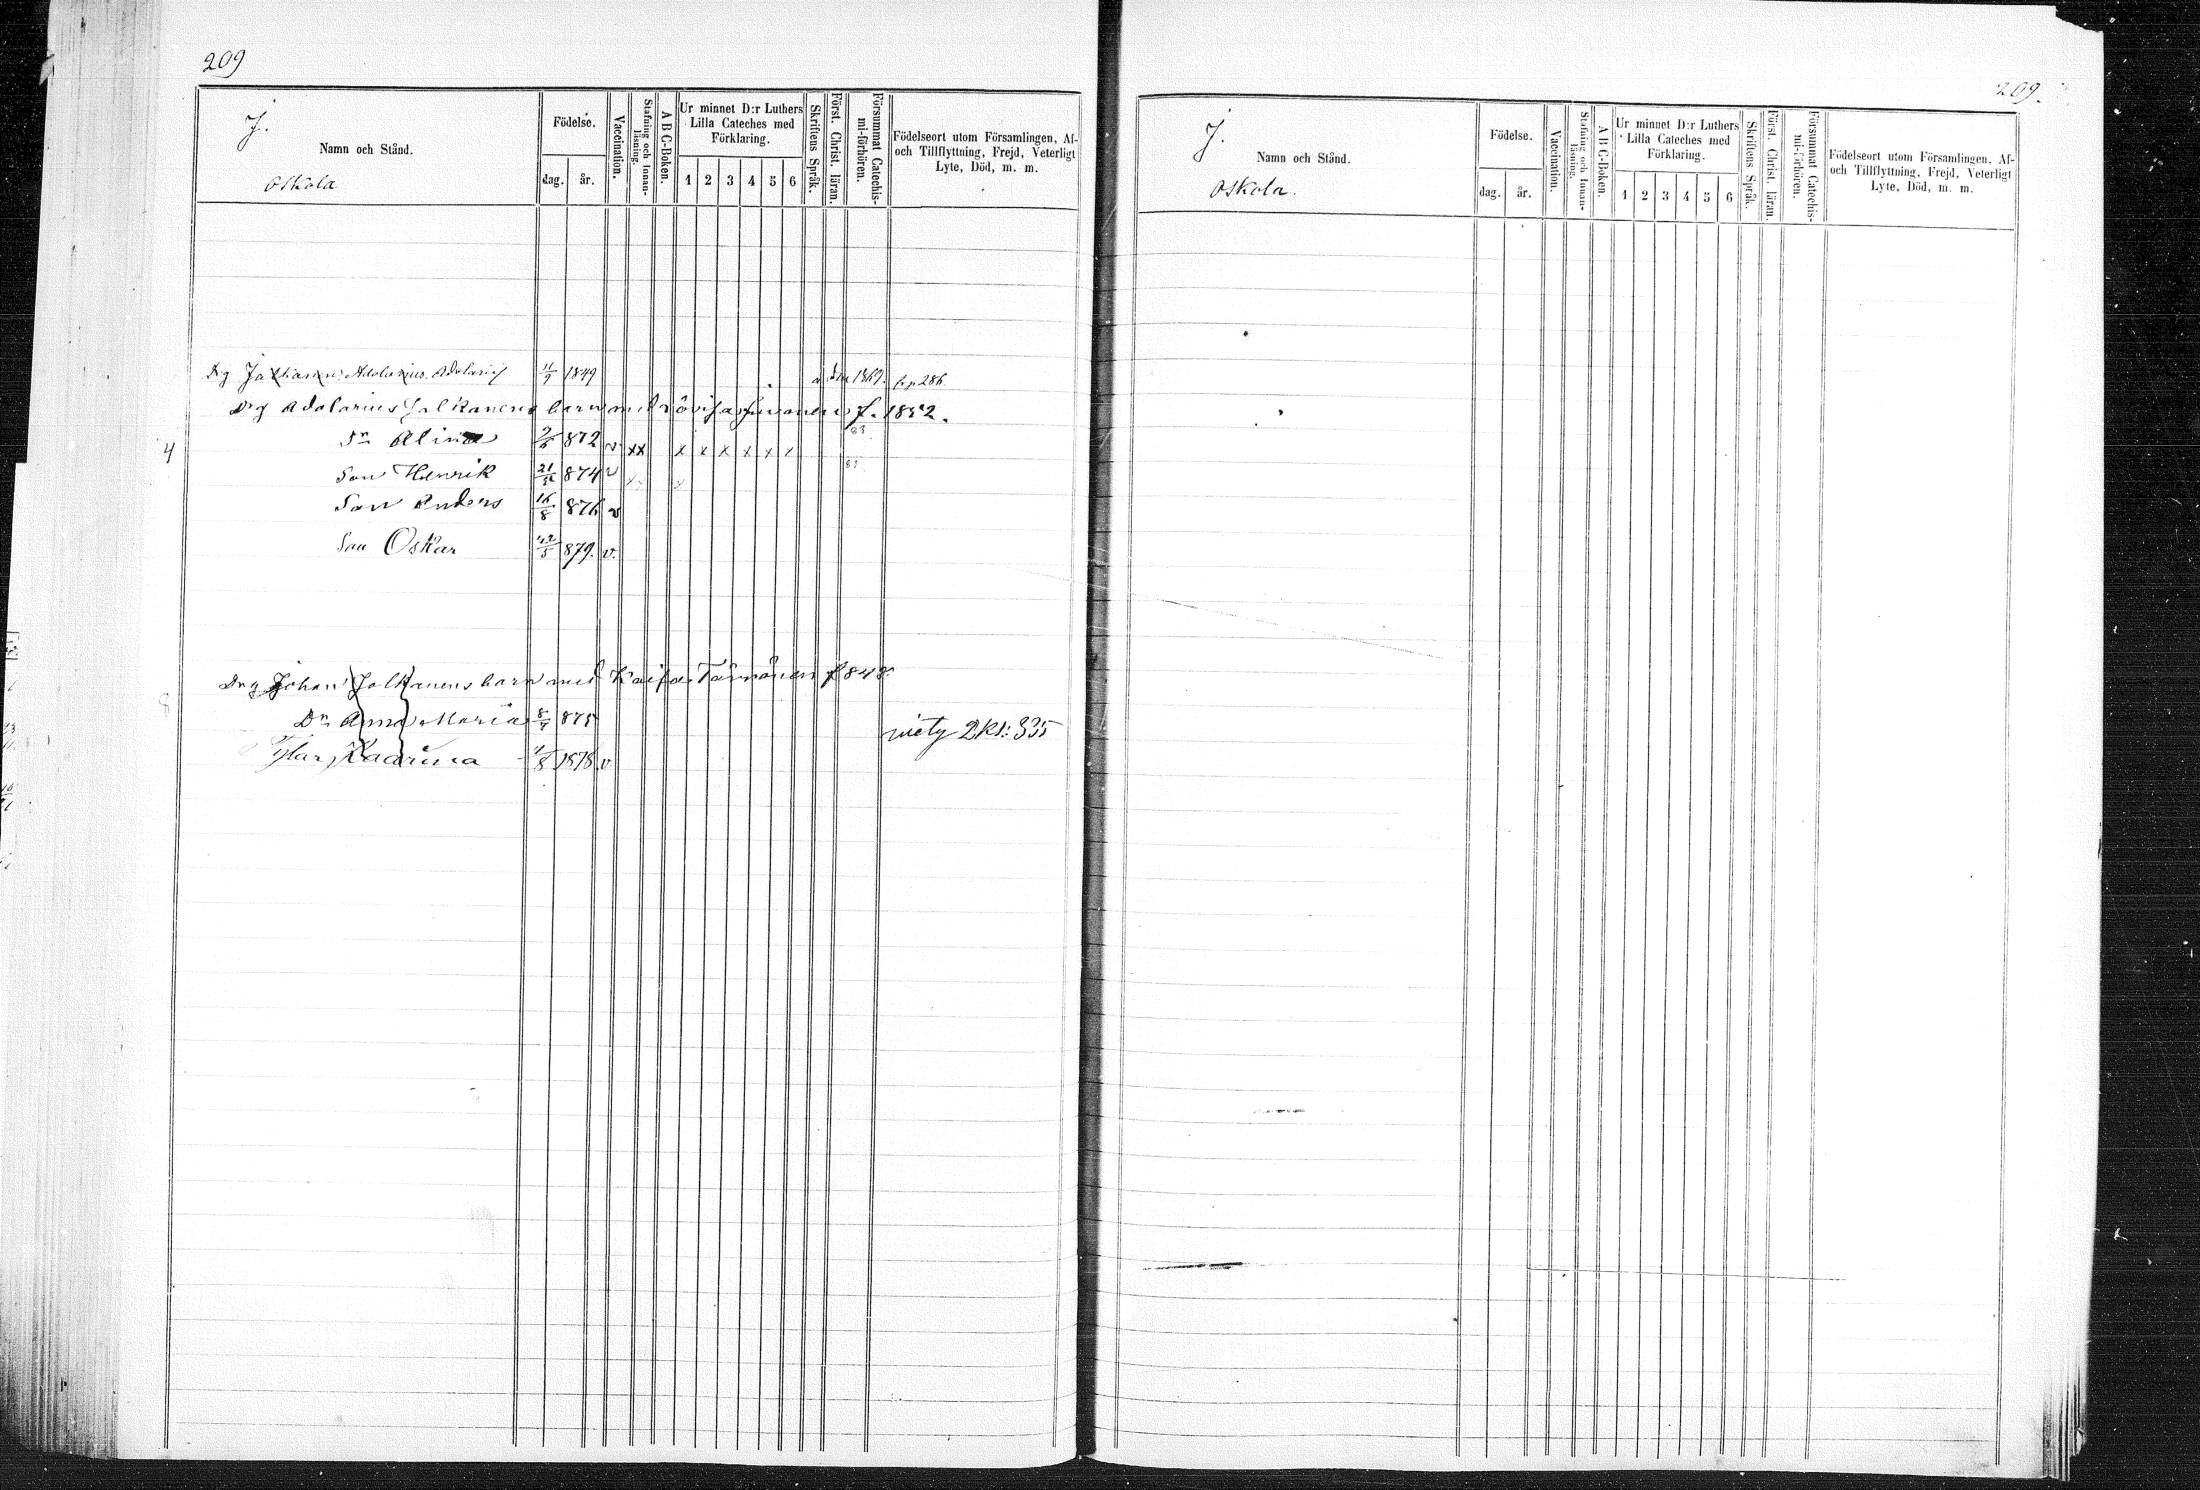 209
J.
Namn och Stånd.
Oskola
Födelse.
dag. år.
Vaccination.
Stafning och Innanläsning.
A B C-Boken.
Ur minnet D:r Luthers
Lilla Cateches med
Förklaring.
1 2 3 4 5 6
Skriftens Språk.
Först. Christ. läran.
Försummat Catechis-
mi-förhören.
Födelseort utom Församlingen, Af-
och Tillflyttning, Frejd, Veterligt
Lyte, Död, m. m.
Adolarius 11/9 1849 a 1869. 286.
Drg Adolarius Jalkanens barn med f. 1852.
4 Alina 872 v xx x x x x x x 83
Son Henrik 21 874 v x x 83
Son Anders 16/8 876 v
Son Oskar 879. v.
Drg Johan Jalkanens barn med Kaisa f 848
Dr Anna Maria 8/4 875 viety 2 kl: 335
Tytär Kaarina 1878 v.
209.
J.
Namn och Stånd.
Oskola.
Födelse.
dag. år.
Vaccination.
Stafning och Innan-
läsning.
A B C-Boken.
Ur minnet D:r Luthers
Lilla Cateches med
Förklaring.
1 2 3 4 5 6
Skriftens Språk.
Först. Christ. läran.
Försummat Catechis-
mi-förhören.
Födelseort utom Församlingen, Af-
och Tillflyttning, Frejd, Veterligt
Lyte, Död, m. m.